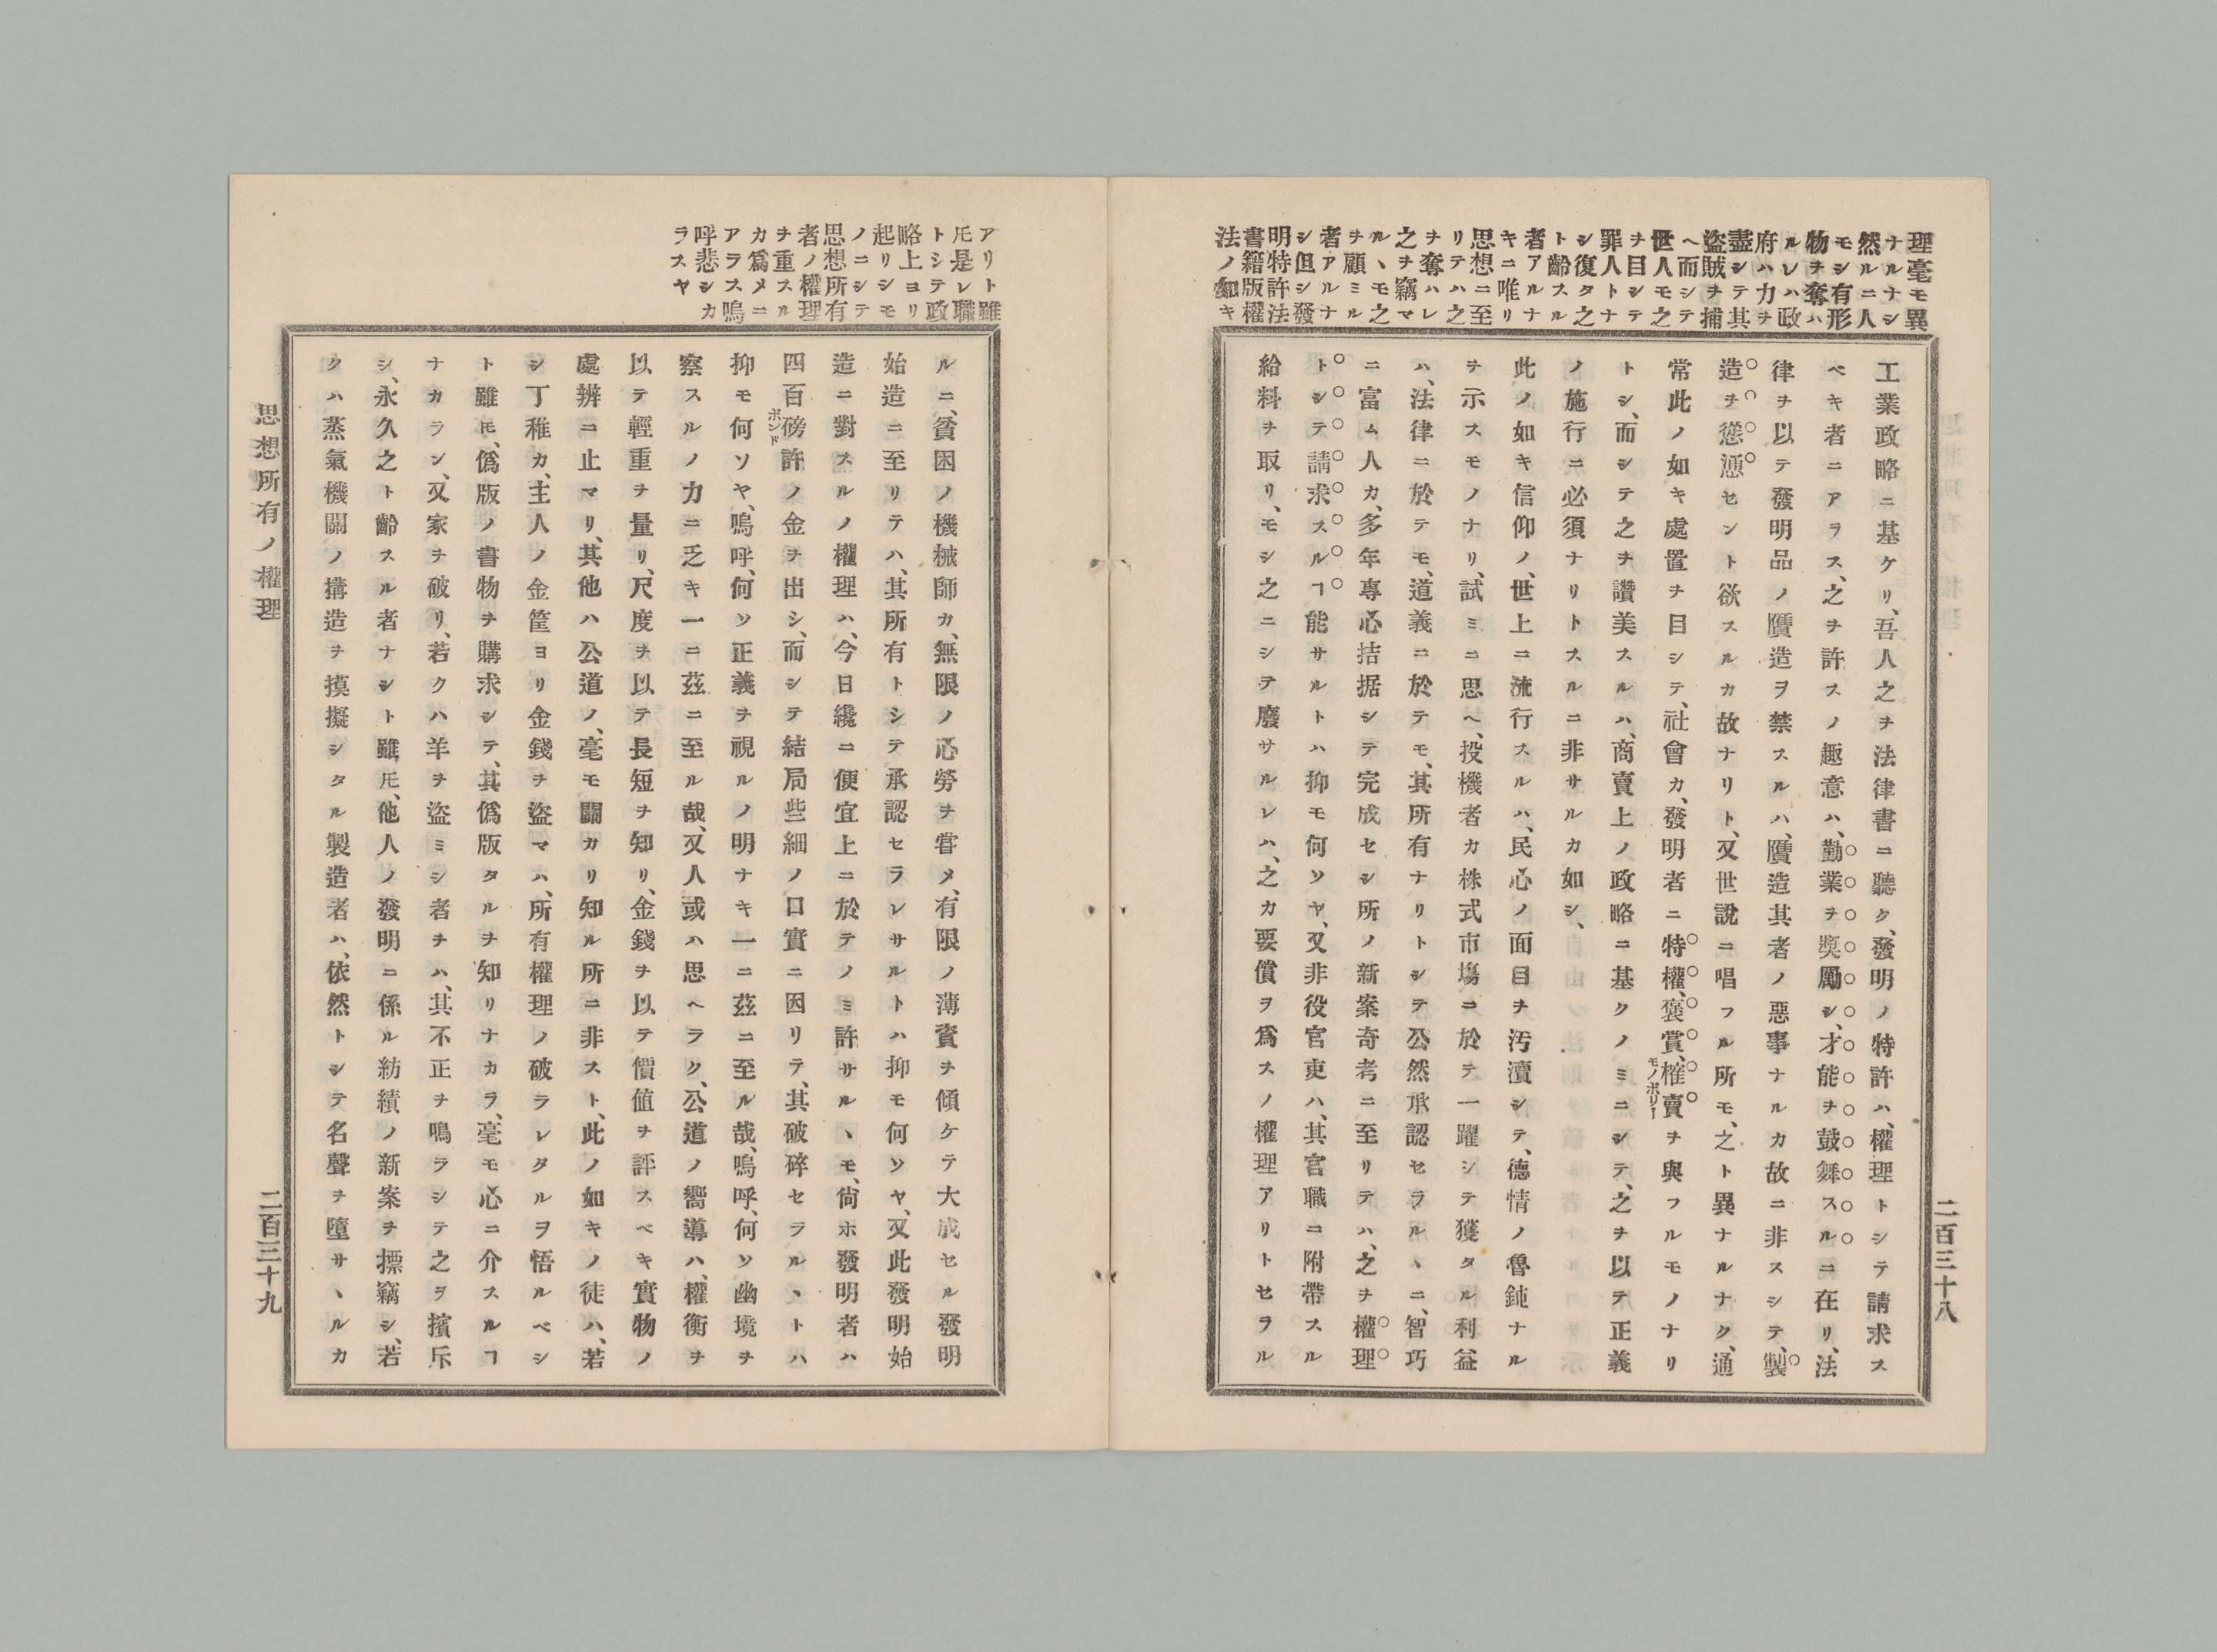 理毫モ異
ナルナシ
然ルニ人
モシ有形
物ヲ奪ハ
ルレハ政
府ハ力ヲ
盡シテ其
盜賊ヲ捕
ヘ而シテ
世人モ之
ヲ目シテ
罪人トナ
シ復タ之
ト齢スル
者アルナ
キニ唯リ
思想ニ至
リテハ之
ヲ奪ハレ
之ヲ竊マ
ルヽモ之
ヲ顧ミル
者アルナ
シ但シ發
明特許法
書籍版權
法ノ如キ
工業政略ニ基ケリ、吾人之ヲ法律書ニ聽ク、發明ノ特許ハ、權理トシテ請求ス
ベキ者ニアラス、之ヲ許スノ趣意ハ、勤業ヲ奬勵シ、才能ヲ鼓舞スルニ在リ、法
律ヲ以テ發明品ノ贋造ヲ禁スルハ、贋造其者ノ惡事ナルカ故ニ非スシテ、製
造ヲ慫慂セント欲スルカ故ナリト、又世說ニ唱フル所モ、之ト異ナルナク、通
常此ノ如キ處置ヲ目シテ、社會カ、發明者ニ特權、襃賞、榷賣ヲ與フルモノナリ
モノポリー
トシ、而シテ之ヲ讚美スルハ、商賣上ノ政略ニ基クノミニシテ、之ヲ以テ正義
ノ施行ニ必須ナリトスルニ非サルカ如シ、
此ノ如キ信仰ノ、世上ニ流行スルハ、民心ノ面目ヲ汚瀆シテ、德情ノ魯鈍ナル
ヲ示スモノナリ、試ミニ思ヘ、投機者カ株式市塲ニ於テ一躍シテ獲タル利益
ハ、法律ニ於テモ、道義ニ於テモ、其所有ナリトシテ公然承認セラルヽニ、智巧
ニ富ム人カ、多年專心拮据シテ完成セシ所ノ新案奇考ニ至リテハ、之ヲ權理
トシテ請求スルヿ能サルトハ抑モ何ソヤ、又非役官吏ハ、其官職ニ附帶スル
給料ヲ取リ、モシ之ニシテ廢サルレハ、之カ要償ヲ爲スノ權理アリトセラル
二百三十八
アリト雖
𪜈是レ職
トシテ政
略上ヨリ
起リシモ
ノニシテ
思想所有
者ノ權理
ヲ重スル
カ爲メニ
アラス嗚
呼悲シカ
ラスヤ
ルニ、貧困ノ機械師カ、無限ノ心勞ヲ甞メ、有限ノ薄資ヲ傾ケテ大成セル發明
始造ニ至リテハ、其所有トシテ承認セラレサルトハ抑モ何ソヤ、又此發明始
造ニ對スルノ權理ハ、今日纔ニ便宜上ニ於テノミ許サルヽモ、尙ホ發明者ハ
四百磅許ノ金ヲ出シ、而シテ結局些細ノ口實ニ因リテ、其破碎セラルヽトハ
ポンド
抑モ何ソヤ、嗚呼、何ソ正義ヲ視ルノ明ナキ一ニ茲ニ至ル哉、嗚呼、何ソ幽境ヲ
察スルノ力ニ乏キ一ニ茲ニ至ル哉、又人或ハ思ヘラク、公道ノ嚮導ハ、權衡ヲ
以テ輕重ヲ量リ、尺度ヲ以テ長短ヲ知リ、金錢ヲ以テ價値ヲ評スベキ實物ノ
處辨ニ止マリ、其他ハ公道ノ、毫モ關カリ知ル所ニ非スト、此ノ如キノ徒ハ、若
シ丁稚カ、主人ノ金筐ヨリ金錢ヲ盜マハ、所有權理ノ破ラレタルヲ悟ルベシ
ト雖𪜈、僞版ノ書物ヲ購求シテ、其僞版タルヲ知リナカラ、毫モ心ニ介スルヿ
ナカラン、又家ヲ破リ、若クハ羊ヲ盜ミシ者ヲハ、其不正ヲ鳴ラシテ之ヲ擯斥
シ、永久之ト齢スル者ナシト雖𪜈、他人ノ發明ニ係ル紡績ノ新案ヲ摽竊シ、若
クハ蒸氣機關ノ搆造ヲ摸擬シタル製造者ハ、依然トシテ名聲ヲ墮サヽルカ
思想所有ノ權理
二百三十九